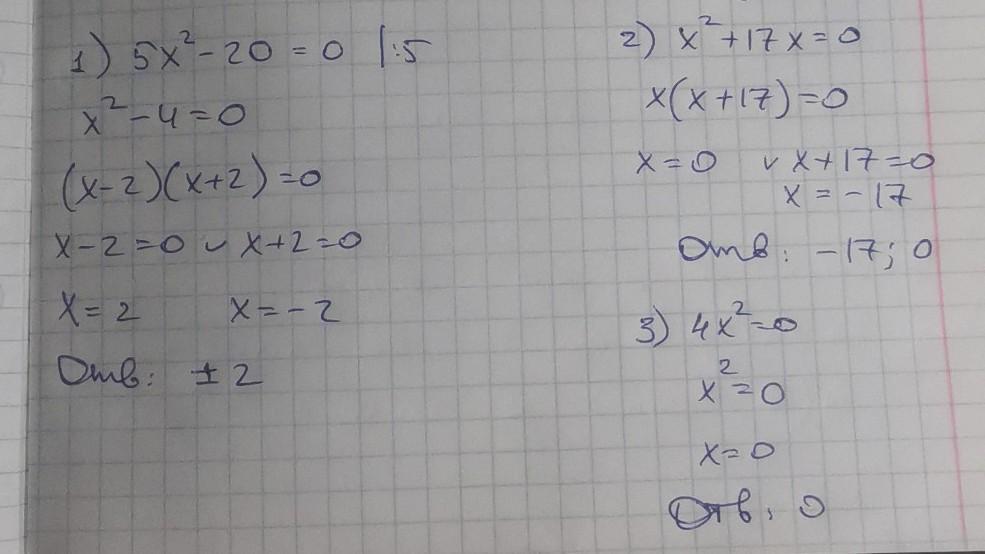 1) 5x² - 20 = 0 |:5
x² - 4 = 0
(x - 2)(x + 2) = 0
x - 2 = 0 ∨ x + 2 = 0
x = 2 x = -2
Отв: ± 2
2) x² + 17x = 0
x(x + 17) = 0
x = 0 ∨ x + 17 = 0
x = -17
Отв: -17; 0
3) 4x² = 0
x² = 0
x = 0
Отв: 0